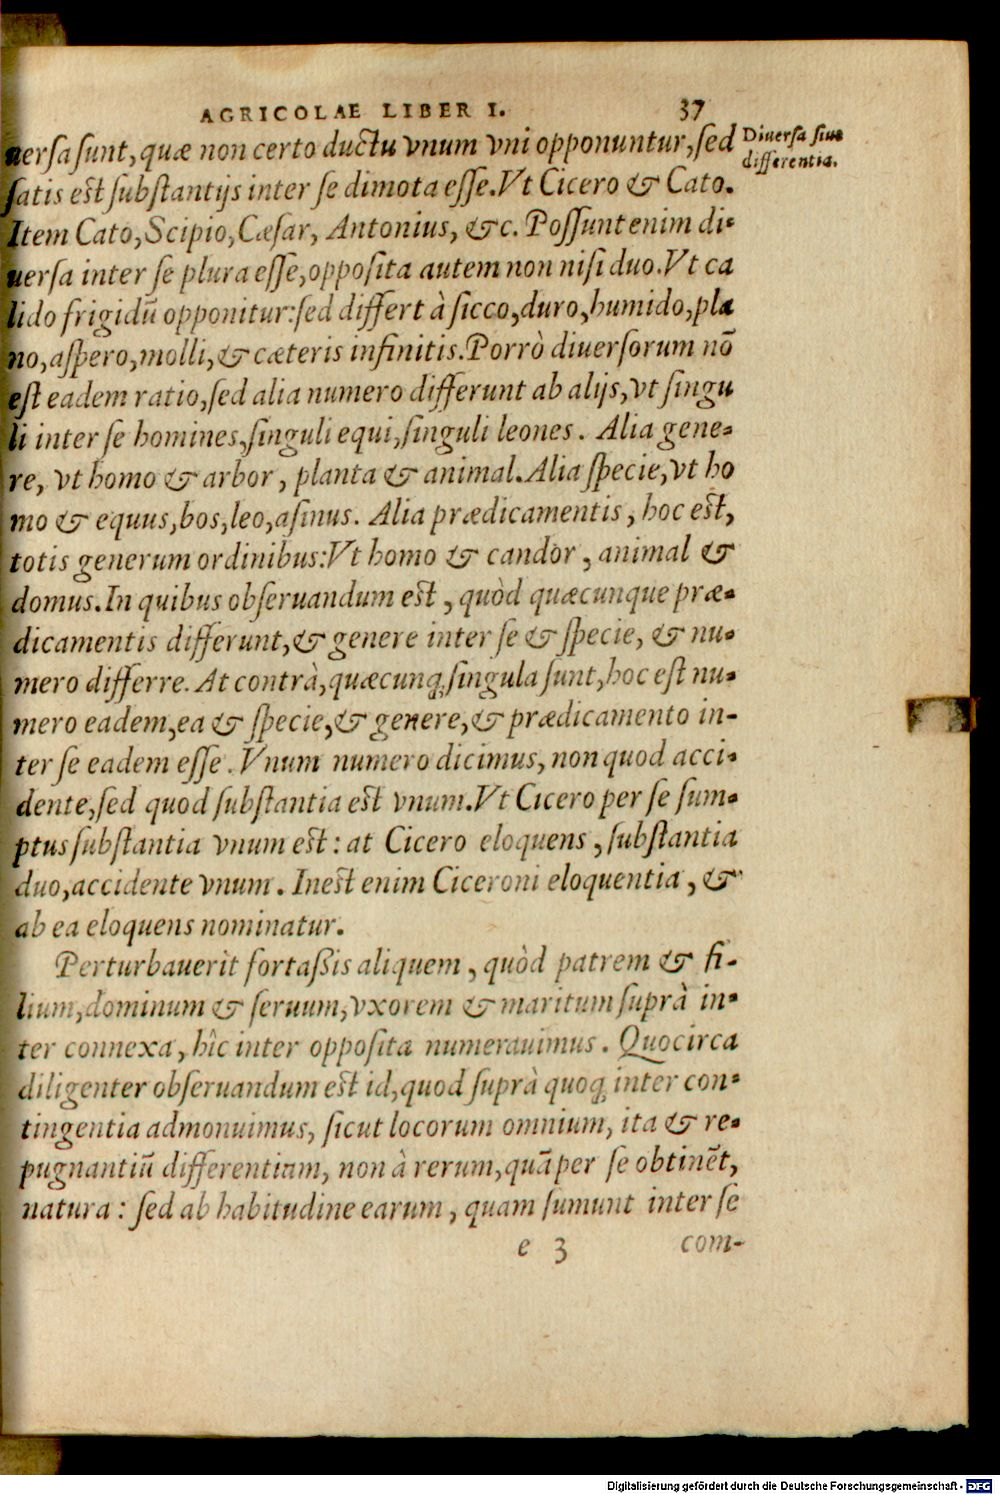 AGRICOLAE LIBER I. 37
uersa sunt, quæ non certo ductu vnum vni opponuntur, sed
Diuersa siue
differentia.
satis est substantijs inter se dimota esse. Vt Cicero & Cato.
Item Cato, Scipio, Cæsar, Antonius, &c. Possunt enim di-
uersa inter se plura esse, opposita autem non nisi duo. Vt ca
lido frigidū opponitur: sed differt à sicco, duro, humido, pla
no, aspero, molli, & cæteris infinitis. Porrò diuersorum nō
est eadem ratio, sed alia numero differunt ab alijs, vt singu
li inter se homines, singuli equi, singuli leones. Alia gene-
re, vt homo & arbor, planta & animal. Alia specie, vt ho
mo & equus, bos, leo, asinus. Alia prædicamentis, hoc est,
totis generum ordinibus: Vt homo & candòr, animal &
domus. In quibus obseruandum est, quòd quæcunque præ-
dicamentis differunt, & genere inter se & specie, & nu-
mero differre. At contrà, quæcunq; singula sunt, hoc est nu-
mero eadem, ea & specie, & genere, & prædicamento in-
ter se eadem esse. Vnum numero dicimus, non quod acci-
dente, sed quod substantia est vnum. Vt Cicero per se sum-
ptus substantia vnum est: at Cicero eloquens, substantia
duo, accidente vnum. Inest enim Ciceroni eloquentia, &
ab ea eloquens nominatur.
Perturbauerit fortaßis aliquem, quòd patrem & fi-
lium, dominum & seruum, vxorem & maritum suprà in-
ter connexa, hîc inter opposita numerauimus. Quocirca
diligenter obseruandum est id, quod suprà quoq; inter con-
tingentia admonuimus, sicut locorum omnium, ita & re-
pugnantiū differentiam, non à rerum, quā per se obtinēt,
natura: sed ab habitudine earum, quam sumunt inter se
e 3 com-
Digitalisierung gefördert durch die Deutsche Forschungsgemeinschaft - DFG